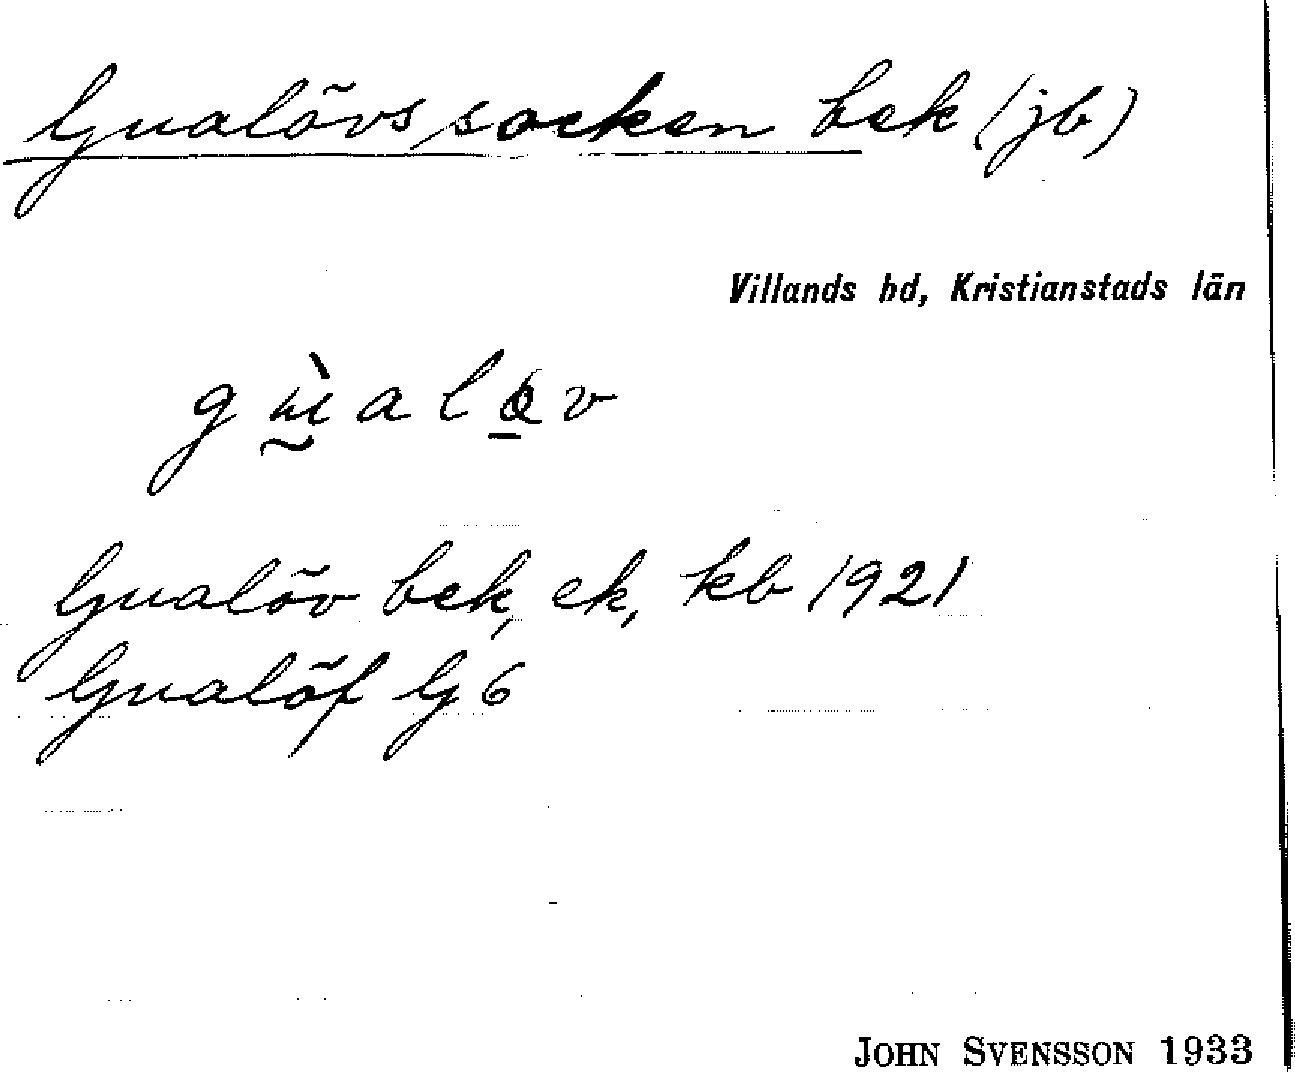 Gualövs socken bek (jb)
Villands hd, Kristianstads län
Gualöv bek, ek, kb 1921
Gualöf G 6
JOHN SVENSSON 1933